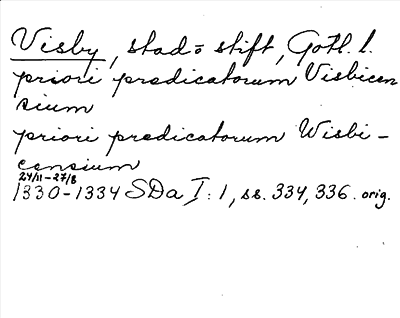 Visby, stad o stift, Gotl. l.
priori predicatorum Visbicen
sium
priori predicatorum Wisbi-
censium
24/11-27/8
1330-1334 SDa I:1, ss. 334, 336. orig.